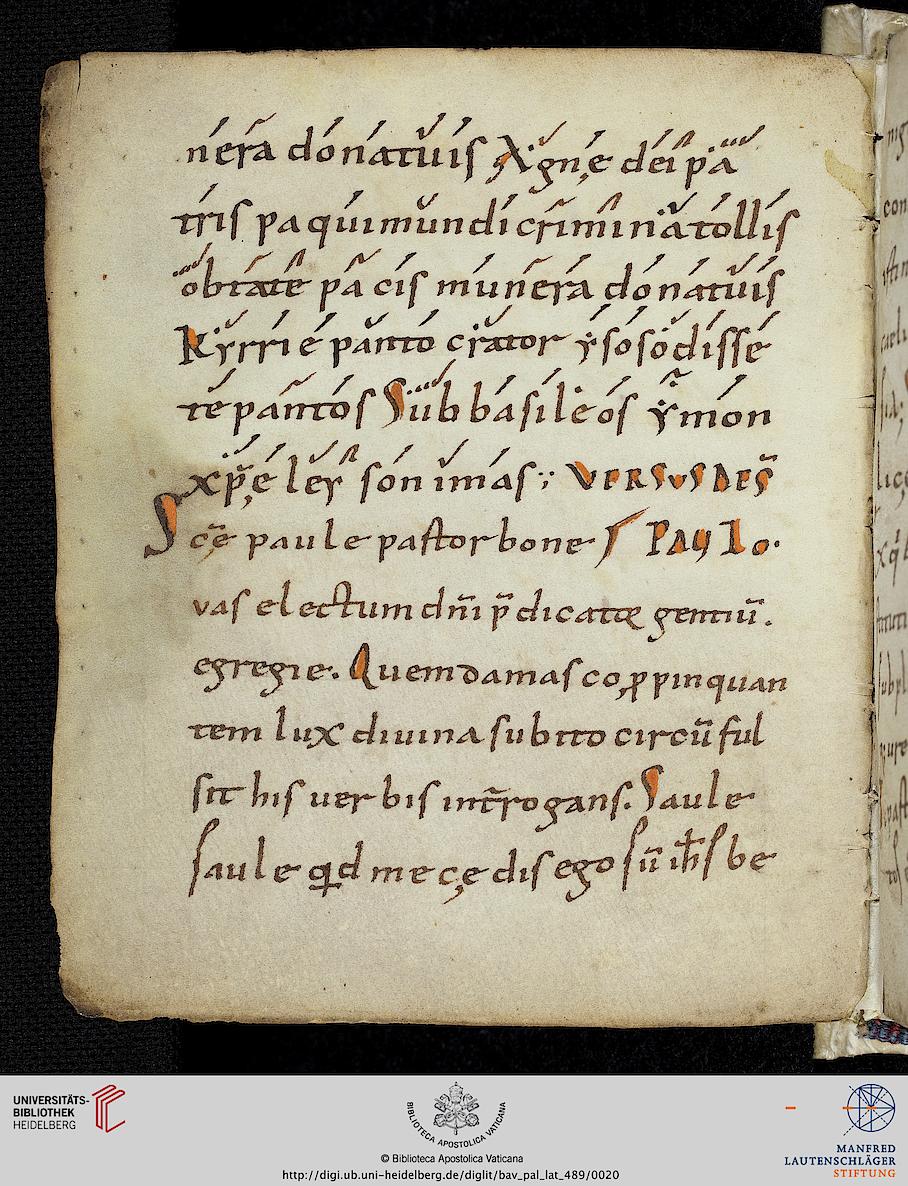 nera donatuis Agnę dei pa
tris pa qui mundi crimina tollis
obtate pa cis munera donatuis
Kyrrie panto crator ysosodisse
te pantos Sub basileos ymon
xp̄ę ley son imas; VERSUS DE S̄
Scę̄ paule pastor bone PAULO.
vas electum dn̄i p̄dicator gentiū.
egregie. Quem damasco ꝓpinquan
tem lux diuina subito circū ful
sit his uer bis int̄rogans. Saule
saule qd me cędis ego sū ih̄s be
UNIVERSITÄTS-
BIBLIOTHEK
HEIDELBERG
BIBLIOTECA APOSTOLICA VATICANA
© Biblioteca Apostolica Vaticana
http://digi.ub.uni-heidelberg.de/diglit/bav_pal_lat_489/0020
MANFRED
LAUTENSCHLÄGER
STIFTUNG